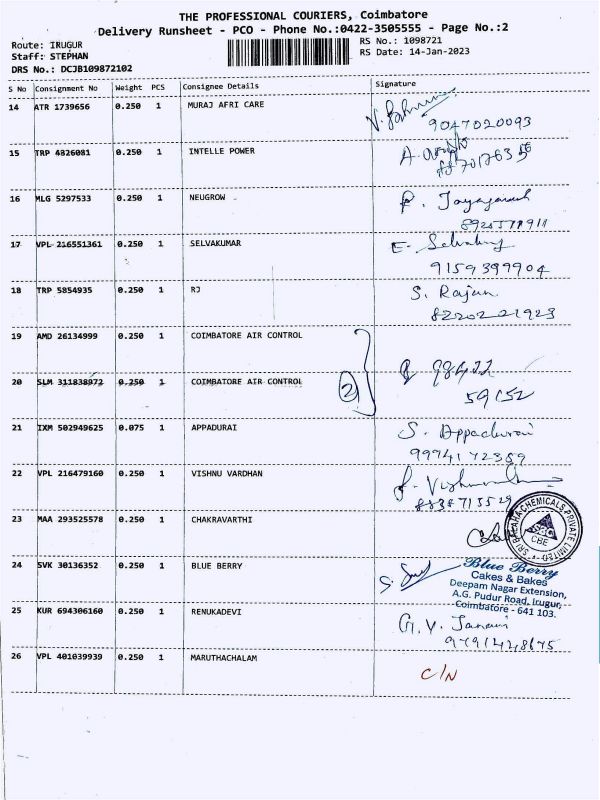 THE PROFESSIONAL COURIERS, Coimbatore
Delivery Runsheet - PCO - Phone No.:0422-3505555 - Page No.:2
Route: IRUGUR
RS No.: 1098721
Staff: STEPHAN
RS Date: 14-Jan-2023
DRS No.: DCJB109872102
S No Consignment No Weight PCS Consignee Details Signature
14 ATR 1739656 0.250 1 MURAJ AFRI CARE
9047020093
15 TRP 4826081 0.250 1 INTELLE POWER
16 MLG 5297533 0.250 1 NEUGROW
17 VPL 216551361 0.250 1 SELVAKUMAR
9159399904
18 TRP 5854935 0.250 1 RJ S. Rajan
19 AMD 26134999 0.250 1 COIMBATORE AIR CONTROL
98422
20 SLM 311838972 0.250 1 COIMBATORE AIR CONTROL 2
59152
21 IXM 502949625 0.075 1 APPADURAI S. Appadurai
9974172389
22 VPL 216479160 0.250 1 VISHNU VARDHAN
23 MAA 293525578 0.250 1 CHAKRAVARTHI
CHEMICALS PRIVATE LIMITED
CBE
24 SVK 30136352 0.250 1 BLUE BERRY Blue Berry
Cakes & Bakes
Deepam Nagar Extension,
A.G. Pudur Road, Irugur,
Coimbatore - 641 103.
25 KUR 694306160 0.250 1 RENUKADEVI
26 VPL 401039939 0.250 1 MARUTHACHALAM C/N